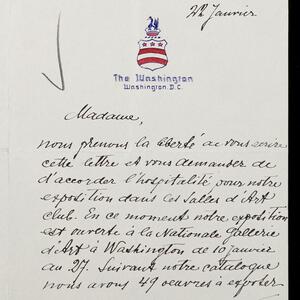 22 Janvier
The Washington
Washington, D.C.
Madame,
nous prenons la liberté de vous écrire
cette lettre et vous demander de
d'accorder l'hospitalité pour notre
exposition dans les Salles d'Art
club. En ce moment notre exposition
est ouverte à la Nationale Gallerie
d'Art à Washington de 10 janvier
au 27. Suivant notre catalogue
nous avons 49 oeuvres à exporter